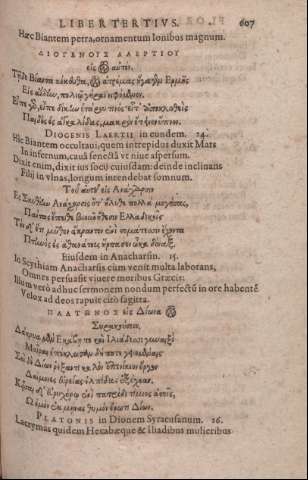 LIBER TERTIVS. 607
Hæc Biantem petra, ornamentum Ionibus magnum.
ΔΙΟΓΕΝΟΥΣ ΛΑΕΡΤΙΟΥ
εἰς αὐτόν.
Τῇδε Βίαντα κέκευθα, ὃν ἀτρέμας ἤγαγεν Ἑρμῆς
Εἰς
Εἶπε γὰρ, εἶπε δίκην ἑτάρου τινὸς· εἶτ' ἀποκλινθεὶς
Παιδὸς ἐς ἀγκαλίδας, μακρὸν ἔτεινεν ὕπνον.
DIOGENIS LAERTII in eundem. 24.
Hîc Biantem occultaui, quem intrepidus duxit Mars
In infernum, caua senecta vt niue aspersum.
Dixit enim, dixit ius socij cuiusdam: deinde inclinans
Filij in vlnas, longum intendebat somnum.
Τοῦ αὐτοῦ εἰς Ἀνάχαρσιν
Ἐς Σκυθίαν Ἀνάχαρσις ὅτ' ἤλυθε πολλὰ μογήσας,
Πάντας ἔπειθε βιοῦν ἤθεσιν Ἑλλαδικοῖς
Τὸν δ' ἔτι μῦθον ἄκραντον ἐνὶ στομάτεσσιν ἔχοντα
Πτηνὸς ἐς ἀθανάτους ἥρπασεν ὦκα δόναξ.
Eiusdem in Anacharsin. 15.
In Scythiam Anacharsis cùm venit multa laborans,
Omnes persuasit viuere moribus Græcis:
Illum verò adhuc sermonem nondum perfectũ in ore habentẽ
Velox ad deos rapuit citò sagitta.
ΠΛΑΤΩΝΟΣ εἰς Δίωνα
Συρακούσιον.
Δάκρυα μὲν Ἑκάβῃ τε καὶ Ἰλιάδεσσι γυναιξὶ
Μοῖραι ἐπέκλωσαν δή ποτε γεινομέναις·
Σοὶ δὲ Δίων ῥέξαντι καλῶν ἐπινίκιον ἔργων
Δαίμονες εὐρείας ἐλπίδας ἐξέχεαν.
Κεῖσαι δ' εὐρυχόρῳ ἐν πατρίδι τίμιος ἀστοῖς,
Ὦ ἐμὸν ἐκμήνας θυμὸν ἔρωτι Δίων.
PLATONIS in Dionem Syracusanum. 26.
Lacrymas quidem Hecabæque & Iliadibus mulieribus